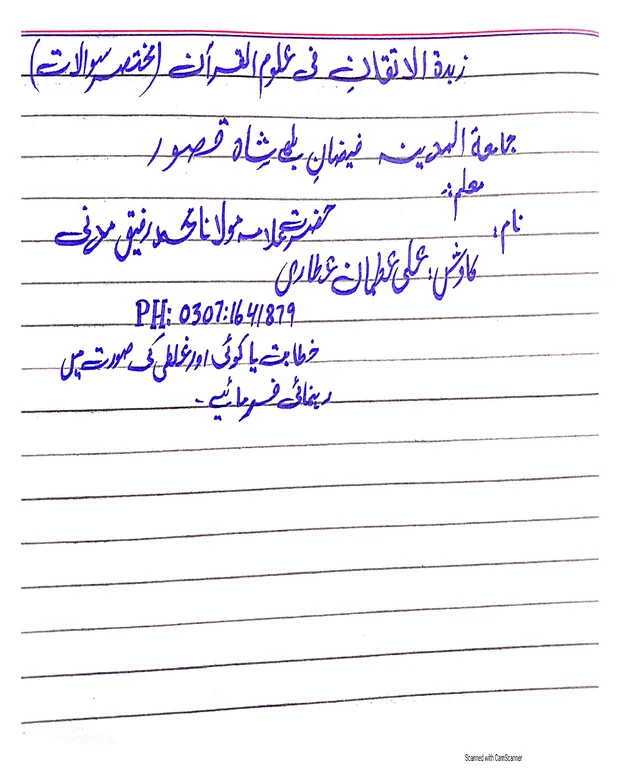 زبدة الاتقان فی علوم القرآن (مختصر سوالات)
جامعة المدینہ فیضانِ بلھے شاہ قصور
معلم:
نام: حضرت علامہ مولانا محمد رفیق مدنی
کاوش: علی عطاری
PH: 0307:1641879
خطابت یا کوئی اور غلطی کی صورت میں
رہنمائی فرمائیے۔
Scanned with CamScanner